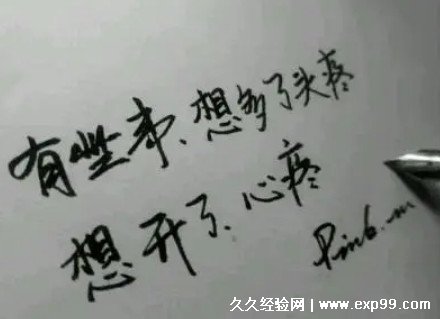 有些事、想多了头疼
想开了、心疼
久久经验网 | www.exp99.com